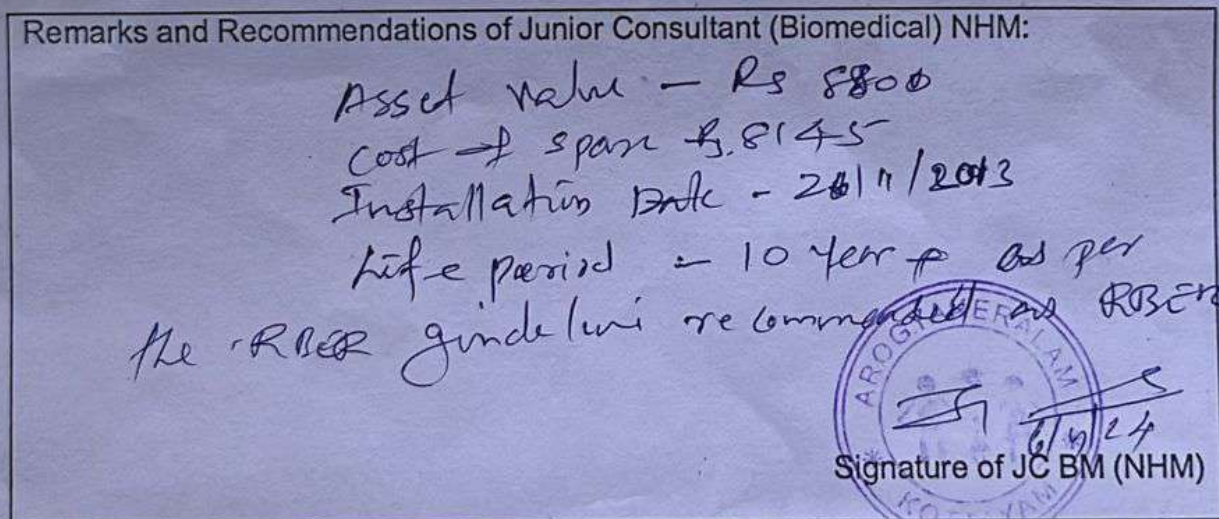 Remarks and Recommendations of Junior Consultant (Biomedical) NHM:
Asset value - Rs 8800
Cost of spare Rs. 8145
Installation Date - 26/11/2013
Life period - 10 year as per
the RBER guideline recommended as RBER
AROGYAKERALAM
6/5/24
Signature of JC BM (NHM)
KOTTAYAM